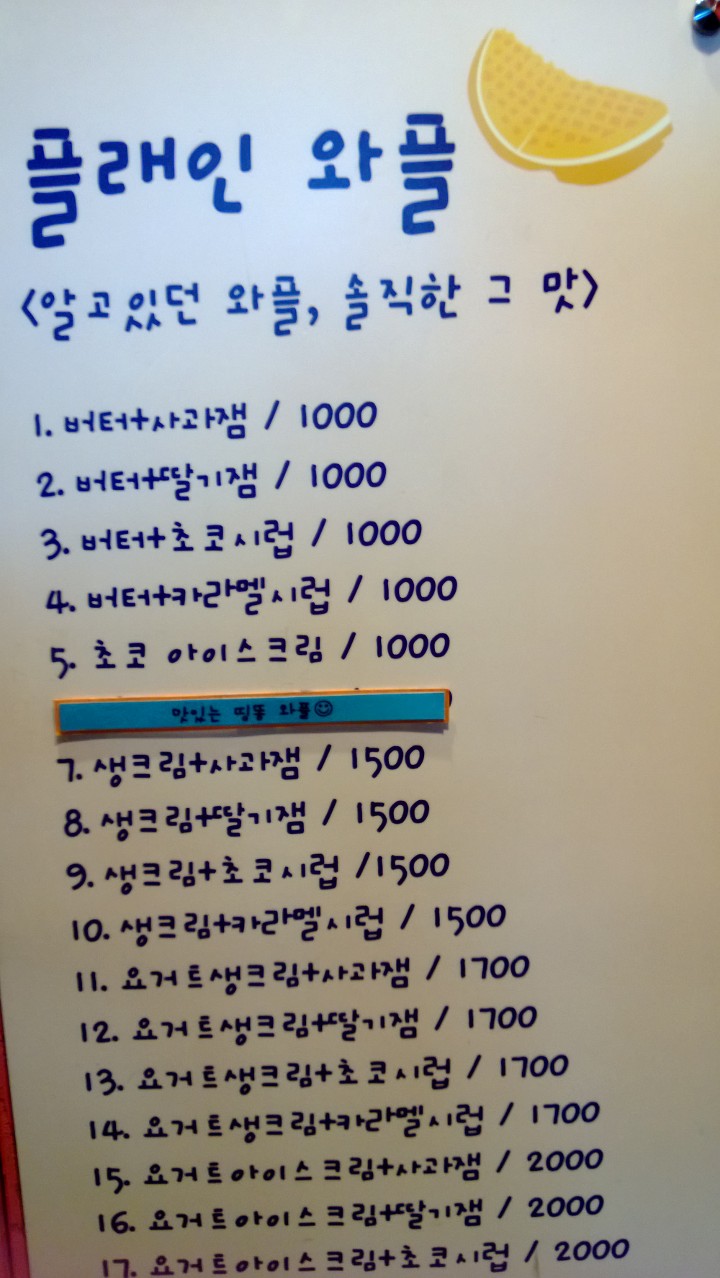 플래인 와플
<알고있던 와플, 솔직한 그 맛>
1. 버터+사과잼 / 1000
2. 버터+딸기잼 / 1000
3. 버터+초코시럽 / 1000
4. 버터+카라멜시럽 / 1000
5. 초코 아이스크림 / 1000
맛있는 띵똥 와플☺
7. 생크림+사과잼 / 1500
8. 생크림+딸기잼 / 1500
9. 생크림+초코시럽 /1500
10. 생크림+카라멜시럽 / 1500
11. 요거트생크림+사과잼 / 1700
12. 요거트생크림+딸기잼 / 1700
13. 요거트생크림+초코시럽 / 1700
14. 요거트생크림+카라멜시럽 / 1700
15. 요거트아이스크림+사과잼 / 2000
16. 요거트아이스크림+딸기잼 / 2000
17. 요거트아이스크림+초코시럽 / 2000